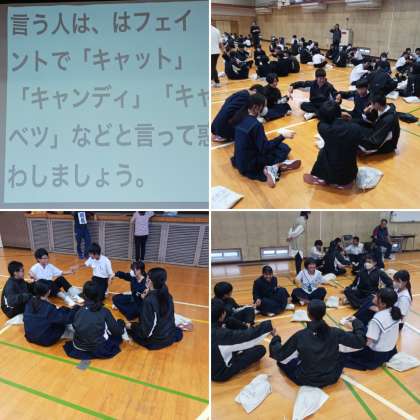 言う人は、はフェイ
ントで「キャット」
「キャンディ」「キャ
ベツ」などと言って惑
わしましょう。